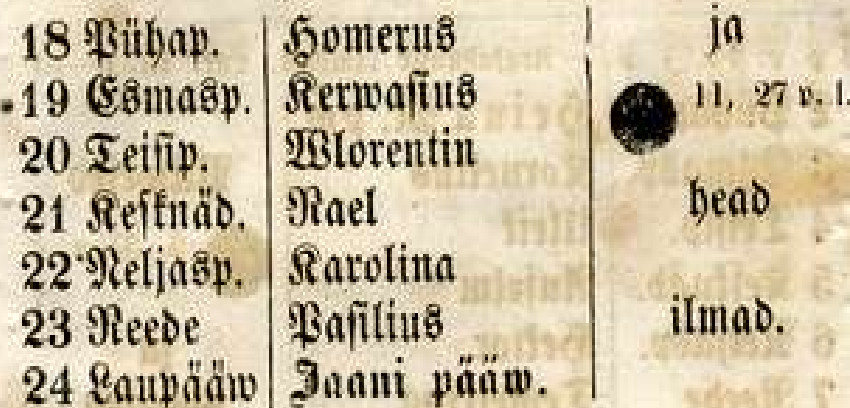 18 Pühap. Homerus ja
19 Esmasp. Kerwasius 11, 27 p. l.
20 Teisip. Wlorentin
21 Kesknäd. Rael head
22 Neljasp. Karolina
23 Reede Pasilius ilmad.
24 Laupääw Jaani pääw.